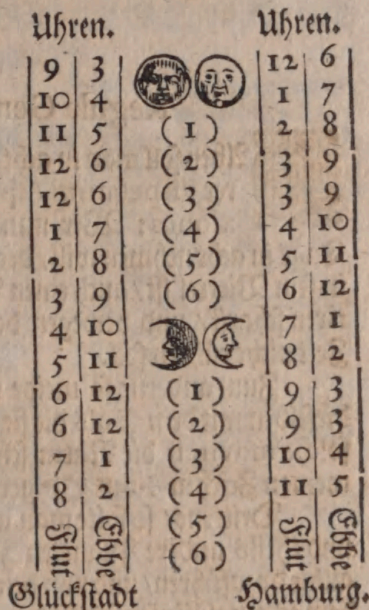 Uhren. Uhren.
9 3 12 6
10 4 1 7
11 5 (1) 2 8
12 6 (2) 3 9
12 6 (3) 3 9
1 7 (4) 4 10
2 8 (5) 5 11
3 9 (6) 6 12
4 10 7 1
5 11 8 2
6 12 (1) 9 3
6 12 (2) 9 3
7 1 (3) 10 4
8 2 (4) 11 5
Flut Ebbe (5) Flut Ebbe
(6)
Glückſtadt Hamburg.